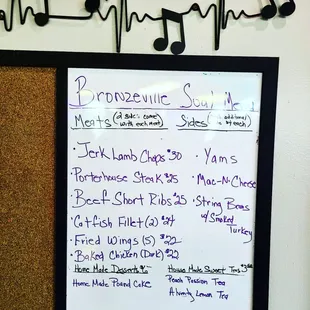 Bronzeville Soul Me
Meats (2 sides come with each meat)
Sides
Jerk Lamb Chops $30
Porterhouse Steak $25
Beef Short Ribs $25
Catfish Fillet (2) $24
Fried Wings (5) $22
Baked Chicken (Dark) $22
Yams
Mac-N-Cheese
String Beans
w/ Smoked
Turkey
Home Made Desserts
Home Made Pound Cake
Home Made Sweet Teas
Peach Passion Tea
Lemon Tea